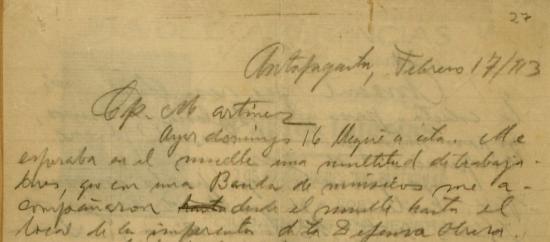 27
Antofagasta, Febrero 17/913
Cp. Martinez
Ayer domingo 16 llegué a esta. Me
esperaba en el muelle una multitud de trabaja-
dores, que con una Banda de músicos me a-
compañaron hasta desde el muelle hasta el
local de la imprenta de la Defensa Obrera.